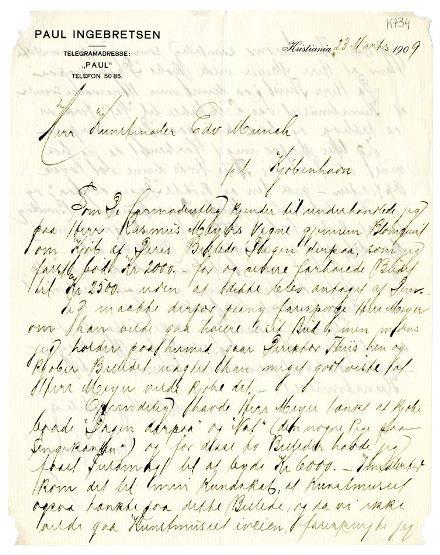 K734
PAUL INGEBRETSEN
TELEGRAMADRESSE:
„PAUL"
TELEFON 50 85.
Kristiania 23 Marts 1909
Herr Kunstmaler Edv Munch
pt Kjöbenhavn
Som De formodentlig kjender til underhandlede jeg
paa Herr Rasmus Meyers Vegne gjennem Blomqvist
om Kjöb af Deres Billede Dagen derpaa, som jeg
först böd Kr 2000.- for og senere forhöiede Budet
til Kr 2500.- uden at dette blev antaget af
Jeg maatte derfor paany forespörge Herr Meyer
om han vilde gaa höiere til Bud men mens
jeg holder paa hermed gaar Direktör Thiis hen og
kjöber Billedet, uagtet han meget godt vidste at
Herr Meyer vilde kjöbe det.-
Oprindelig havde Herr Meyer tænkt at kjöbe
baade "Dagen derpaa" og (den nögne Pige paa
Sengekanten") og for disse to Billeder havde jeg
faaet Fuldmagt til at byde Kr 6000.- Imidlertid
kom det til min Kundskab, at Kunstmuseet
ogsaa tænkte paa dette Billede, og da vi ikke
vilde gaa Kunstmuseet iveien, forespurgte jeg